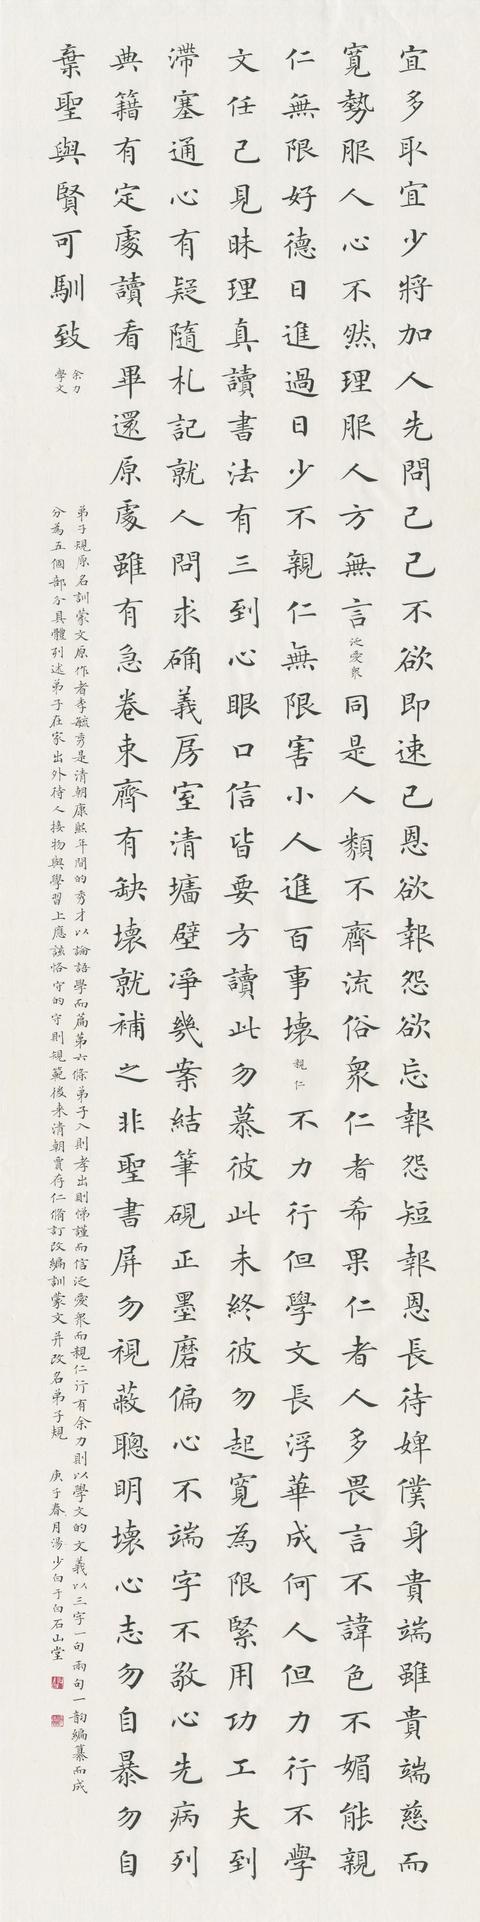 宜多取宜少將加人先問己己不欲即速已恩欲報怨欲忘報怨短報恩長待婢僕身貴端雖貴端慈而
寬勢服人心不然理服人方無言 泛愛衆 同是人類不齊流俗衆仁者希果仁者人多畏言不諱色不媚能親
仁無限好德日進過日少不親仁無限害小人進百事壞 親仁 不力行但學文長浮華成何人但力行不學
文任己見昧理真讀書法有三到心眼口信皆要方讀此勿慕彼此未終彼勿起寬為限緊用功工夫到
滯塞通心有疑隨札記就人問求确義房室清墻壁淨幾案結筆硯正墨磨偏心不端字不敬心先病列
典籍有定處讀看畢還原處雖有急卷束齊有缺壞就補之非聖書屏勿視蔽聰明壞心志勿自暴勿自
棄聖與賢可馴致
余力
學文
弟子規原名訓蒙文原作者李毓秀是清朝康熙年間的秀才以論語學而篇第六條弟子入則孝出則悌謹而信泛愛衆而親仁行有余力則以學文的文義以三字一句兩句一韵編纂而成
分為五個部分具體列述弟子在家出外待人接物與學習上應該恪守的守則規範後來清朝賈存仁脩訂改編訓蒙文并改名弟子規 庚子春月湯少白于白石山堂